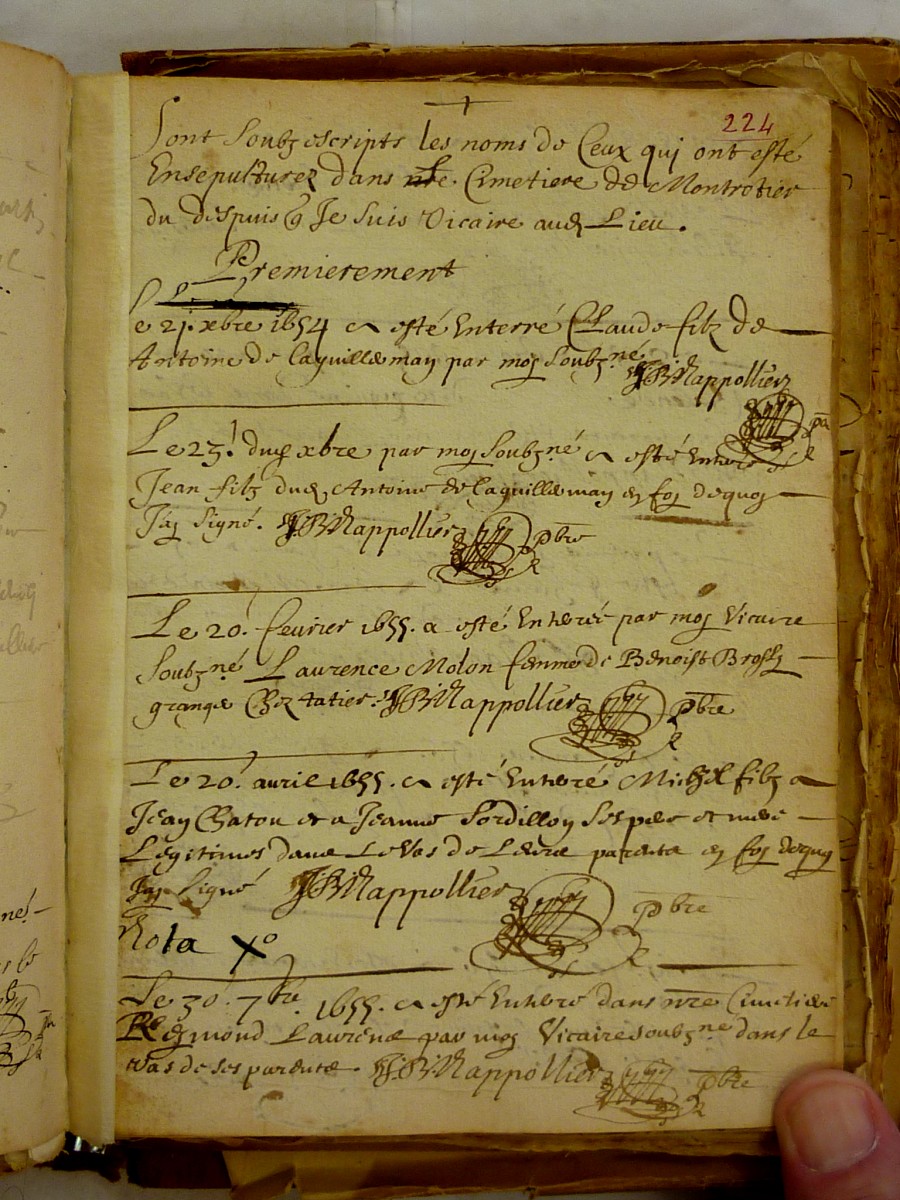 224
Sont Soubz escripts les noms de Ceux qui ont esté
Ensepulturez dans nre Cimetiere de Montrotier
du despuis q Je Suis Vicaire aud Lieu.
Premierement
Le 21. xbre 1654 a esté Enterré Claude filz de
Antoine de Laguillemay par moy Soubzné JB Mappollier
pbre
Le 23. dud xbre par moy Soubzné a esté Enterré
Jean filz dud Antoine de Laguillemay en foy dequoy
Jay Signé. JB Mappollier pbre
Le 20. feuvrier 1655. a esté Enterrée par moy Vicaire
Soubzné Laurence Molon femme de Benoist
grange Chez tatier. JB Mappollier pbre
Le 20. avril 1655. a esté Enterré Michel filz a
Jean Chaton et a Jeanne Sordillon Ses pere et mere
Legitimes dans Le Vas de Leurs parents en foy dequoy
Jay Signé JB Mappollier pbre
Nota Xo
Le 30. 7bre. 1655. a esté Enterré dans nre Cimetiere
Reymond Laurent par moy Vicaire soubzné dans le
vas de ses parents. JB Mappollier pbre